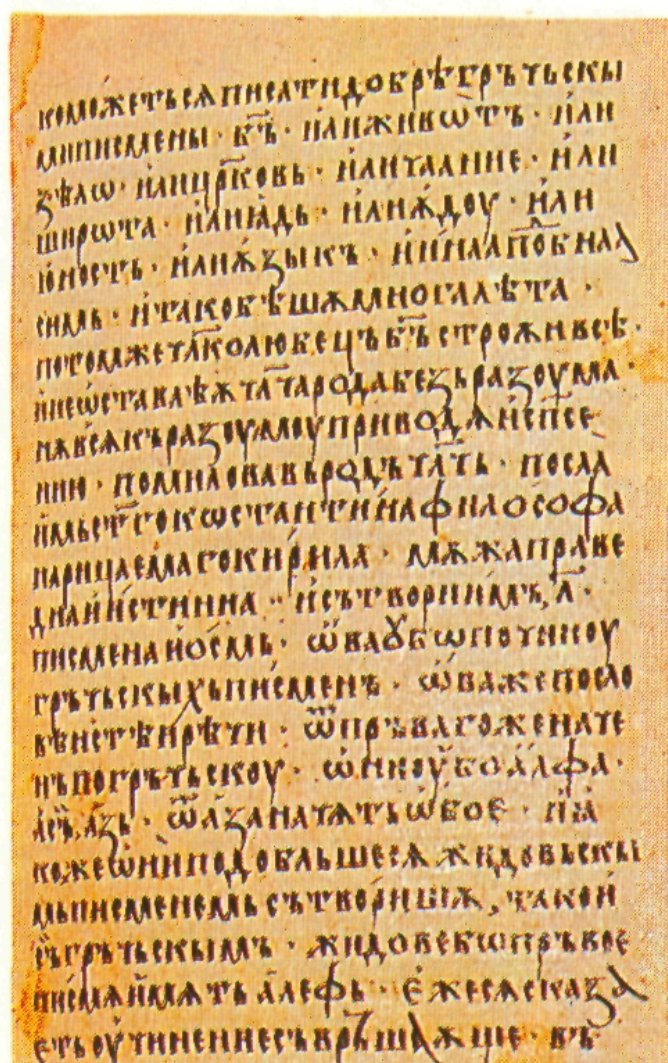 коможетьсѧписатидобрѣгръчьскы
миписмены · б҃ъ · и҆лиживѡ́тъ · и҆ли
ѕѣлѡ · и҆лицр҃ковь · и҆личаание · и҆ли
широта · и҆лиꙗ҆дь · и҆лиѫ҆доу · и҆ли
ю҆ность · и҆лиѫ҆зыкъ · и҆и҆наапо҃бнаа
симь · и҆такобѣшѫмногалѣта ·
потомжечл҃колюбецъб҃ъстроѫивсѣ ·
инеѡ҆ставлѣѫчл҃чародабезъразоума ·
нѫвсѧкъразоумоуприводѧи҆сп҃се
нию · помиловавьродъчл҃чь · посла
и҆мьст҃гокѡстантинафилосо́фа
нарицаемагокирила · мѫжаправе
днаи҆истинна · и҆сътвориимъ, л҃ ·
писменаио҆смь · ѡ҆вауб҆ѡпочиноу
гръчьскыхьписменъ · ѡ҆важепосло
вѣнстѣирѣчи · ѿпръвагоженаче
нъпогръчьскоу · ѡ҆ниоу҆боа҆лфа ·
асъ, а҆зь · ѿа҆заначѧтъѡ҆бое · и҆ꙗ
кожеѡ҆ниподобльшесѧжидовьскы
мьписменемьсътворишѫ, такои҆
съгръчьскымъ · жидовебѡпръвое
писмѧи҆мѫтьа҆лефь · е҆жесѧсказа
етьоу҆чениесъвръшаѫще · въ